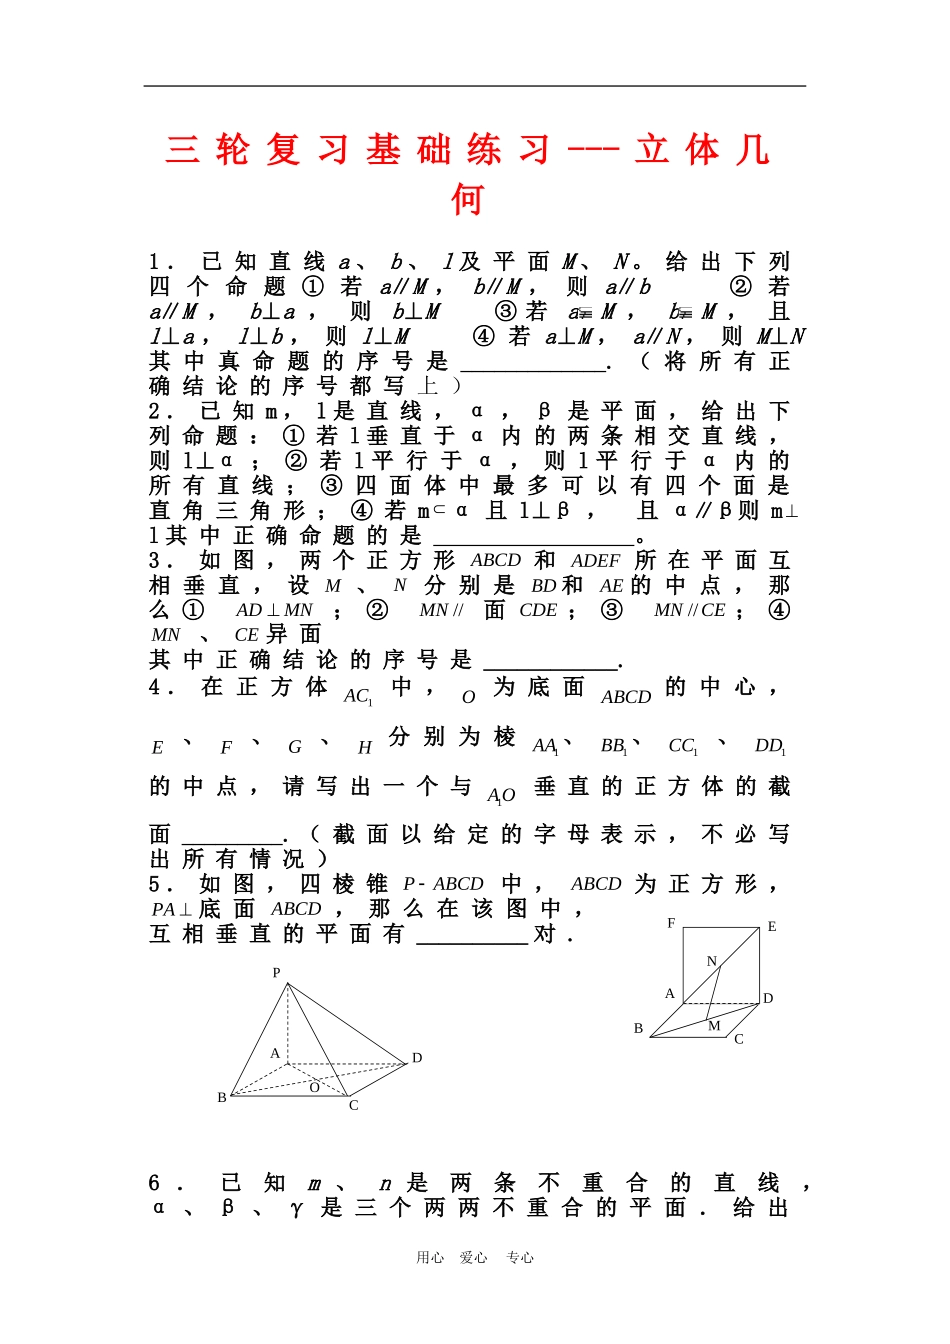 三轮复习基础练习---立体几
何
1．已知直线a、b、l及平面M、N。给出下列
四个命题①若a∥M，b∥M，则a∥b ②若
a∥M，b⊥a，则b⊥M ③若a M，b M，且
l⊥a，l⊥b，则l⊥M ④若a⊥M，a∥N，则M⊥N
其中真命题的序号是_____________.（将所有正
确结论的序号都写上）
2．已知m，l是直线，α，β是平面，给出下
列命题：①若l垂直于α内的两条相交直线，
则l⊥α；②若l平行于α，则l平行于α内的
所有直线；③四面体中最多可以有四个面是
直角三角形；④若m⊂α且l⊥β， 且α∥β则m⊥
l其中正确命题的是__________________。
3．如图，两个正方形ABCD和ADEF所在平面互
相垂直，设M、N分别是BD和AE的中点，那
么①AD⊥MN；②MN//面CDE；③MN//CE；④
MN、CE异面
其中正确结论的序号是____________.
4．在正方体AC₁中，O为底面ABCD的中心，
E、F、G、H分别为棱AA₁、BB₁、CC₁、DD₁
的中点，请写出一个与A₁O垂直的正方体的截
面_________.（截面以给定的字母表示，不必写
出所有情况）
5．如图，四棱锥P-ABCD中，ABCD为正方形，
PA⊥底面ABCD，那么在该图中，
互相垂直的平面有__________对．
F E
N
A D
B M C
P
A D
O
B C
6．已知m、n是两条不重合的直线，
α、β、γ是三个两两不重合的平面．给出
用心 爱心 专心